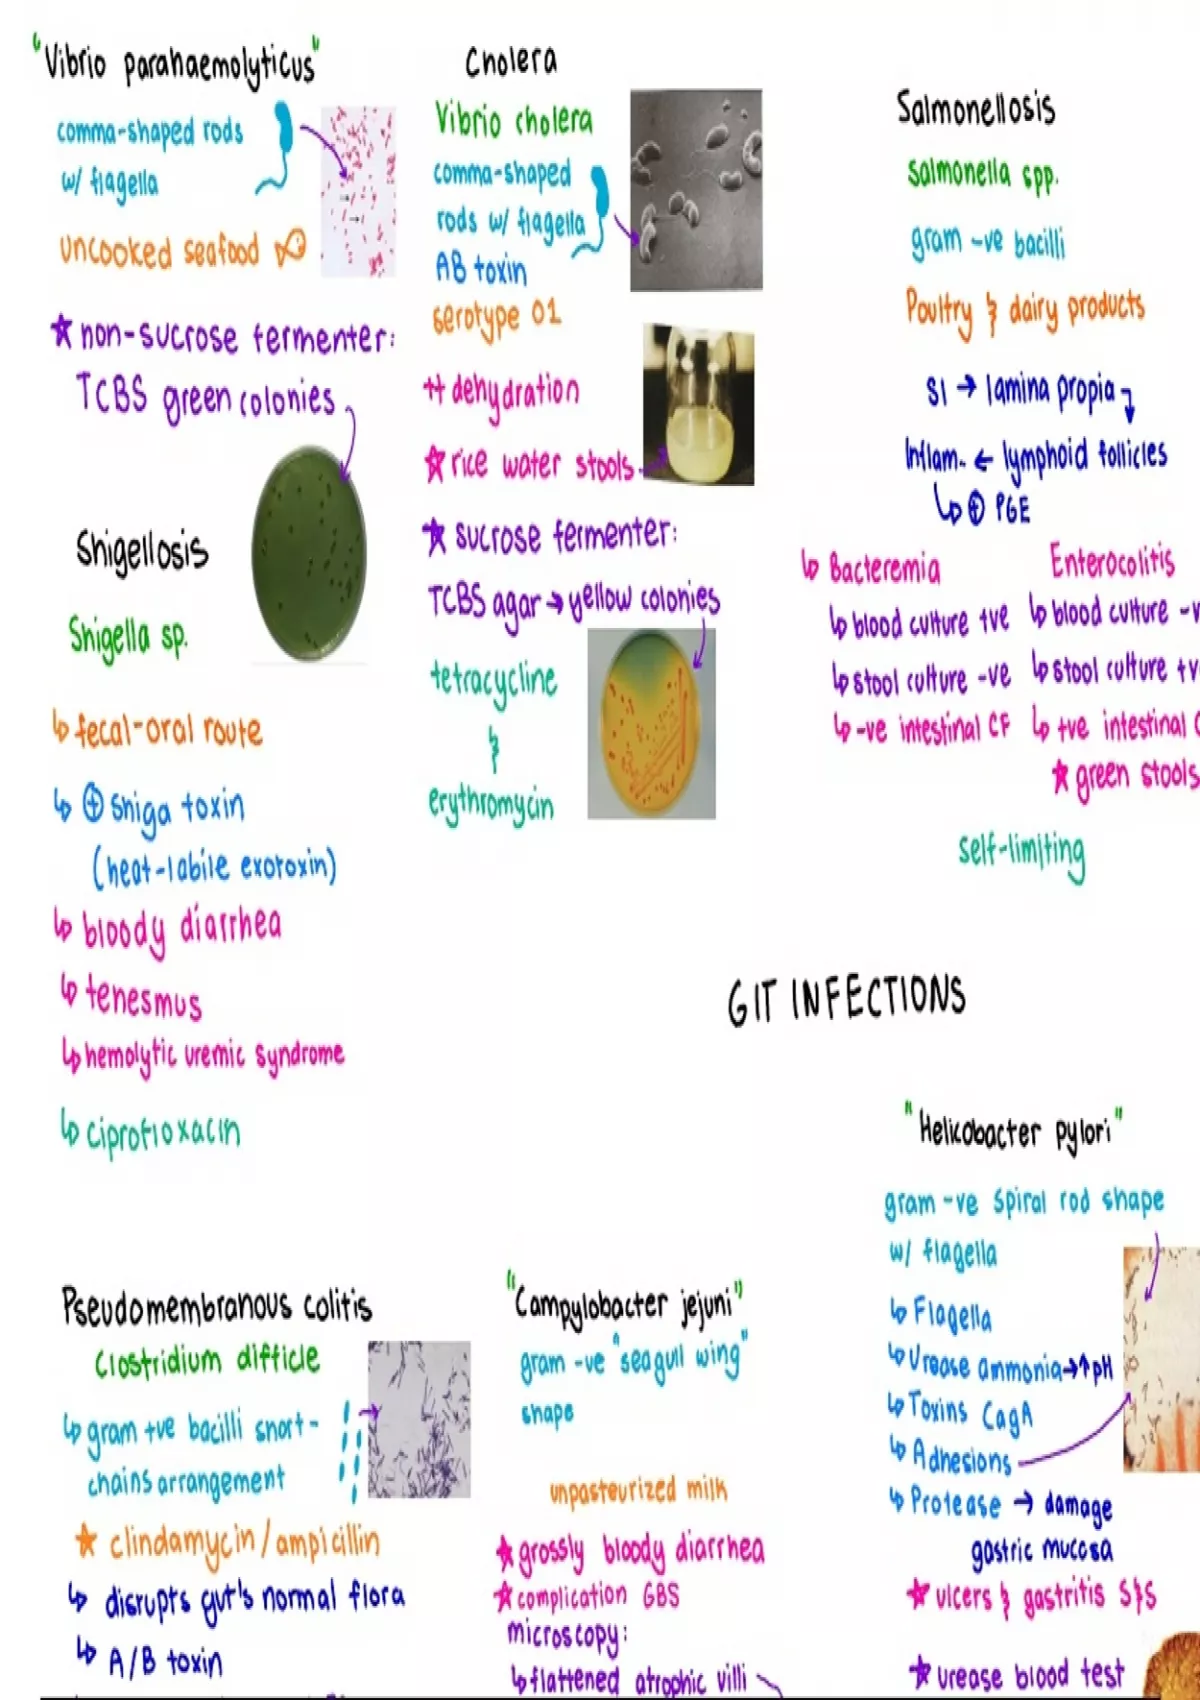 "Vibrio parahaemolyticus"
comma-shaped rods
w/ flagella
uncooked seafood
★ non-sucrose fermenter:
TCBS green colonies
Shigellosis
Shigella sp.
↳ fecal-oral route
↳ ⊕ Shiga toxin
(heat-labile exotoxin)
↳ bloody diarrhea
↳ tenesmus
↳ hemolytic uremic syndrome
↳ ciprofloxacin
Cholera
Vibrio cholera
comma-shaped
rods w/ flagella
AB toxin
serotype O1
++ dehydration
★ rice water stools
★ sucrose fermenter:
TCBS agar → yellow colonies
tetracycline
&
erythromycin
Salmonellosis
Salmonella spp.
gram -ve bacilli
Poultry & dairy products
SI → lamina propia
Inflam. ← lymphoid follicles
↳ ⊕ PGE
↳ Bacteremia
↳ blood culture +ve
↳ stool culture -ve
↳ -ve intestinal CF
Enterocolitis
↳ blood culture -v
↳ stool culture +v
↳ +ve intestinal C
★ green stools
self-limiting
GIT INFECTIONS
"Helicobacter pylori"
gram -ve spiral rod shape
w/ flagella
↳ Flagella
↳ Urease ammonia → ↑ pH
↳ Toxins CagA
↳ Adhesions
↳ Protease → damage
gastric mucosa
★ ulcers & gastritis S&S
★ urease blood test
Pseudomembranous colitis
Clostridium difficle
↳ gram +ve bacilli short-
chains arrangement
★ clindamycin/ampicillin
↳ disrupts gut's normal flora
↳ A/B toxin
"Campylobacter jejuni"
gram -ve "seagull wing"
shape
unpasteurized milk
★ grossly bloody diarrhea
★ complication GBS
microscopy:
↳ flattened atrophic villi